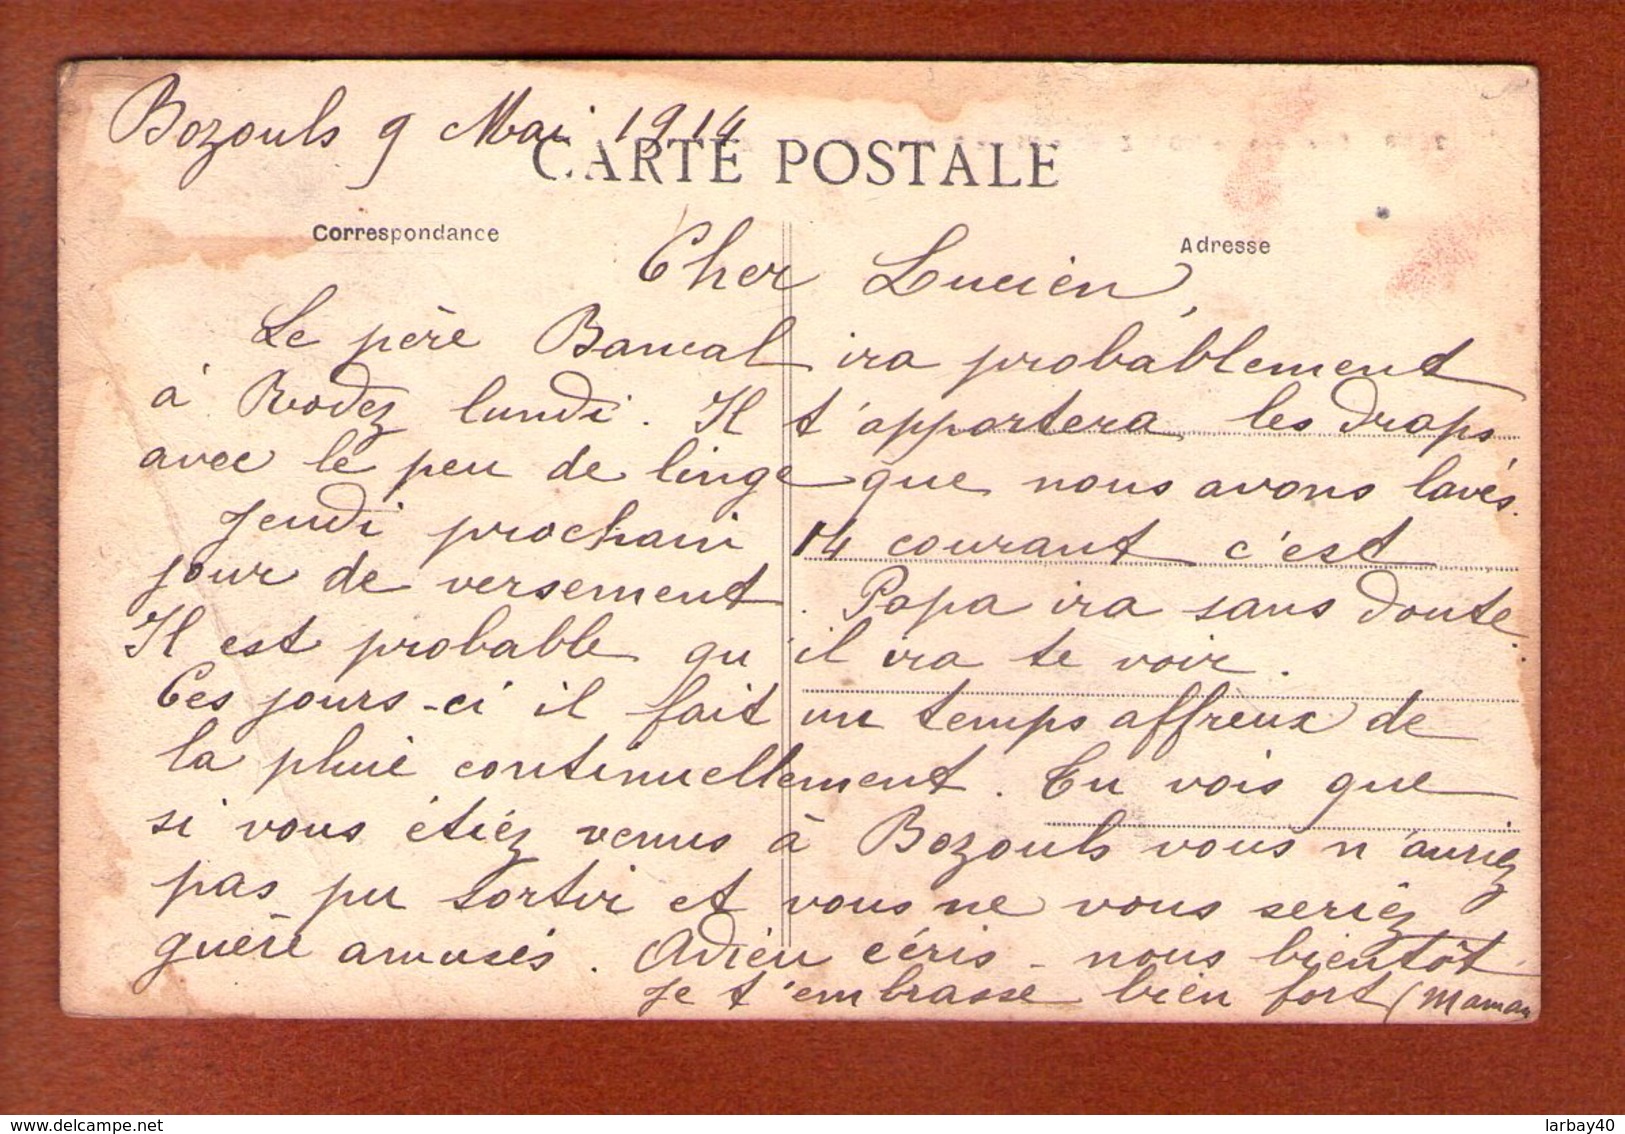 Bozouls 9 Mai 1914
CARTE POSTALE
Correspondance
Adresse
Cher Lucien,
Le père Bancal ira probablement
à Rodez lundi. Il t'apportera les draps
avec le peu de linge que nous avons lavés.
Jeudi prochain 14 courant c'est
jour de versement. Papa ira sans doute.
Il est probable qu'il ira te voir.
Ces jours-ci il fait un temps affreux de
la pluie continuellement. Tu vois que
si vous étiez venus à Bozouls vous n'auriez
pas pu sortir et vous ne vous seriez
guère amusés. Adieu écris-nous bientôt
Je t'embrasse bien fort (Maman
delcampe.net
larbay40